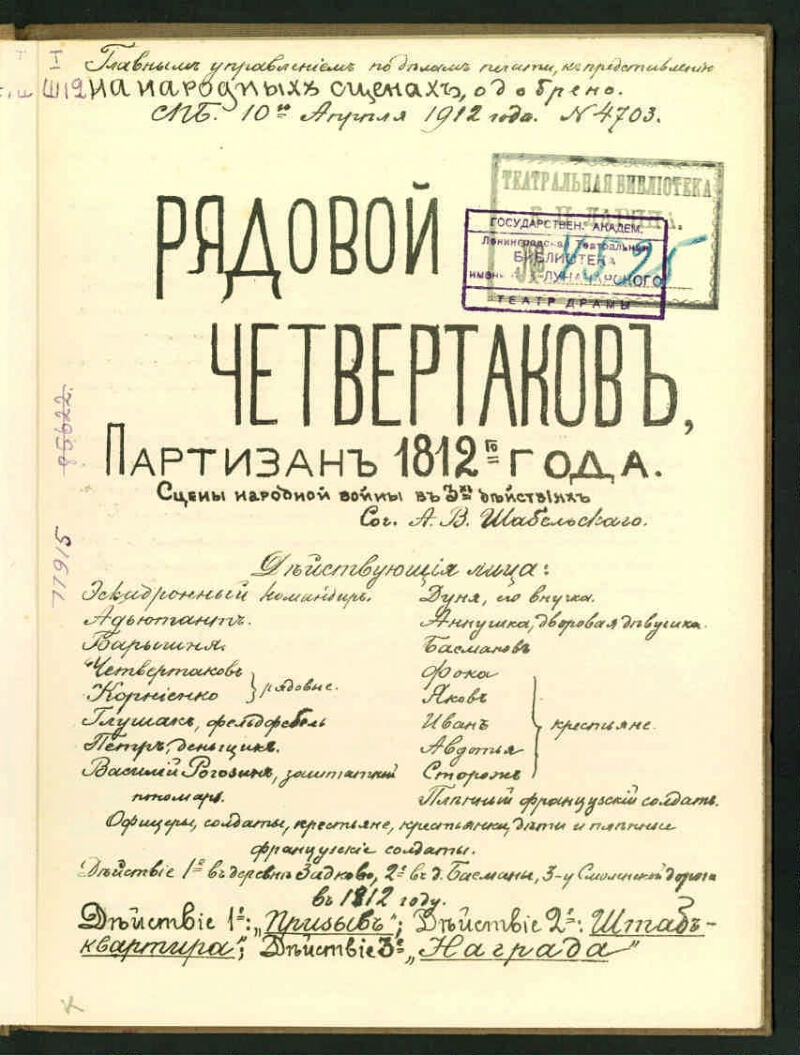 I
Главнымъ управленіемъ по дѣламъ печати, къ представленію
Ш12 на народныхъ сценахъ, одобрено.
СПБ. 10го Апрѣля 1912 года. N 4703.
ТЕАТРАЛЬНАЯ БИБЛІОТЕКА
ГОСУДАРСТВЕН. АКАДЕМ.
Ленинградская Театральная
БИБЛИОТЕКА
ИМЕНИ ЛУНАЧАРСКОГО
ТЕАТР ДРАМЫ
РЯДОВОЙ
ЧЕТВЕРТАКОВЪ,
ПАРТИЗАНЪ 1812го ГОДА.
Сцены народной войны въ 3хъ дѣйствіяхъ
Соч. А. В. Шабельскаго.
95622.
77915
Дѣйствующія лица:
Эскадронный командиръ.
Адъютантъ.
Барышня.
Четвертаковъ
Корніенко
рядовые.
Глушакъ, фельдфебель
Петръ, деньщикъ.
Василій Рогозинъ, заштатный
пономарь.
Дуня, его внучка.
Аннушка, дворовая дѣвушка.
Басмановъ
Фока
Яковъ
Иванъ
Авдотья
Сторожъ
крестьяне.
Плѣнный французскій солдатъ.
Офицеры, солдаты, крестьяне, крестьянки, дѣти и плѣнные
французскіе солдаты.
Дѣйствіе 1е въ деревнѣ Задково, 2е въ д. Басманы, 3-у Смоленской дороги
въ 1812 году.
Дѣйствіе 1е: „Призывъ"; Дѣйствіе 2е: Штабъ-
квартира"; Дѣйствіе 3е „Награда"